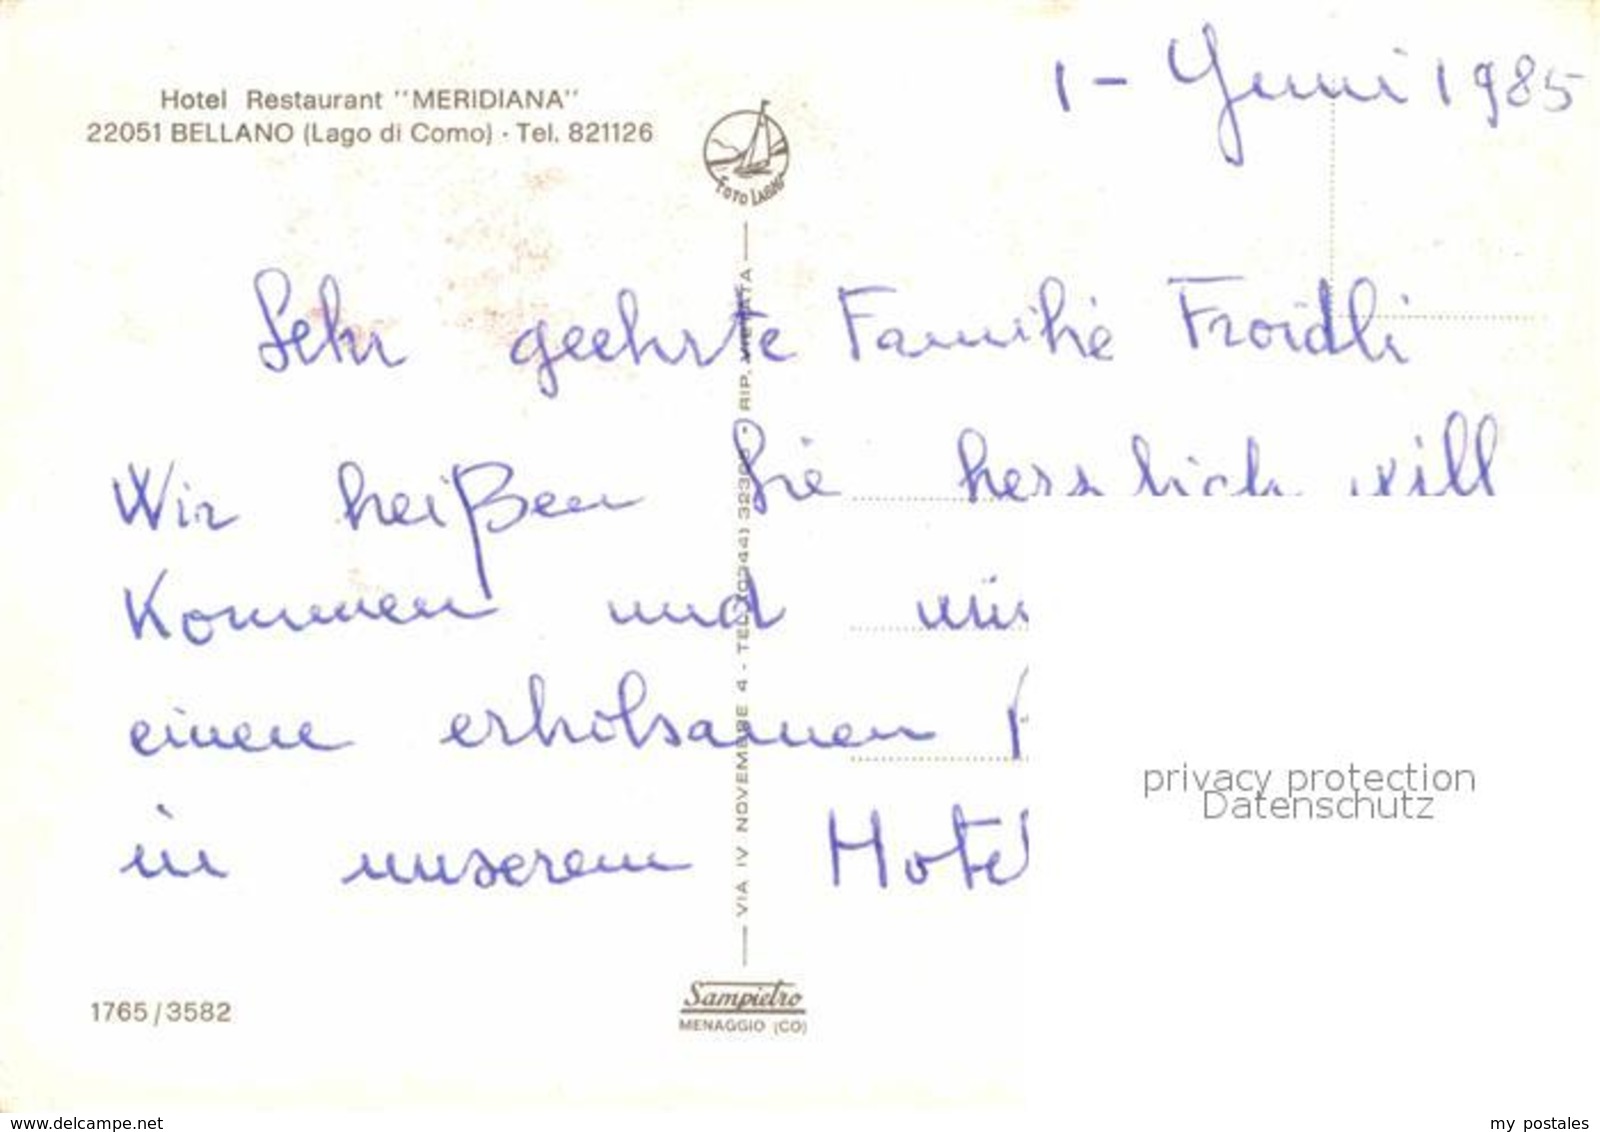 1 - Juni 1985
Hotel Restaurant "MERIDIANA"
22051 BELLANO (Lago di Como) · Tel. 821126
FOTO
Sehr geehrte Familie Froidli
Wir heißen Sie herzlich will
Kommen und
einen erholsamen
in unserem Hotel
VIA IV NOVEMBRE 4 - TEL. (0344) - RIP. VIETATA
1765/3582
Sampietro
MENAGGIO (CO)
privacy protection
Datenschutz
www.delcampe.net
my_postales